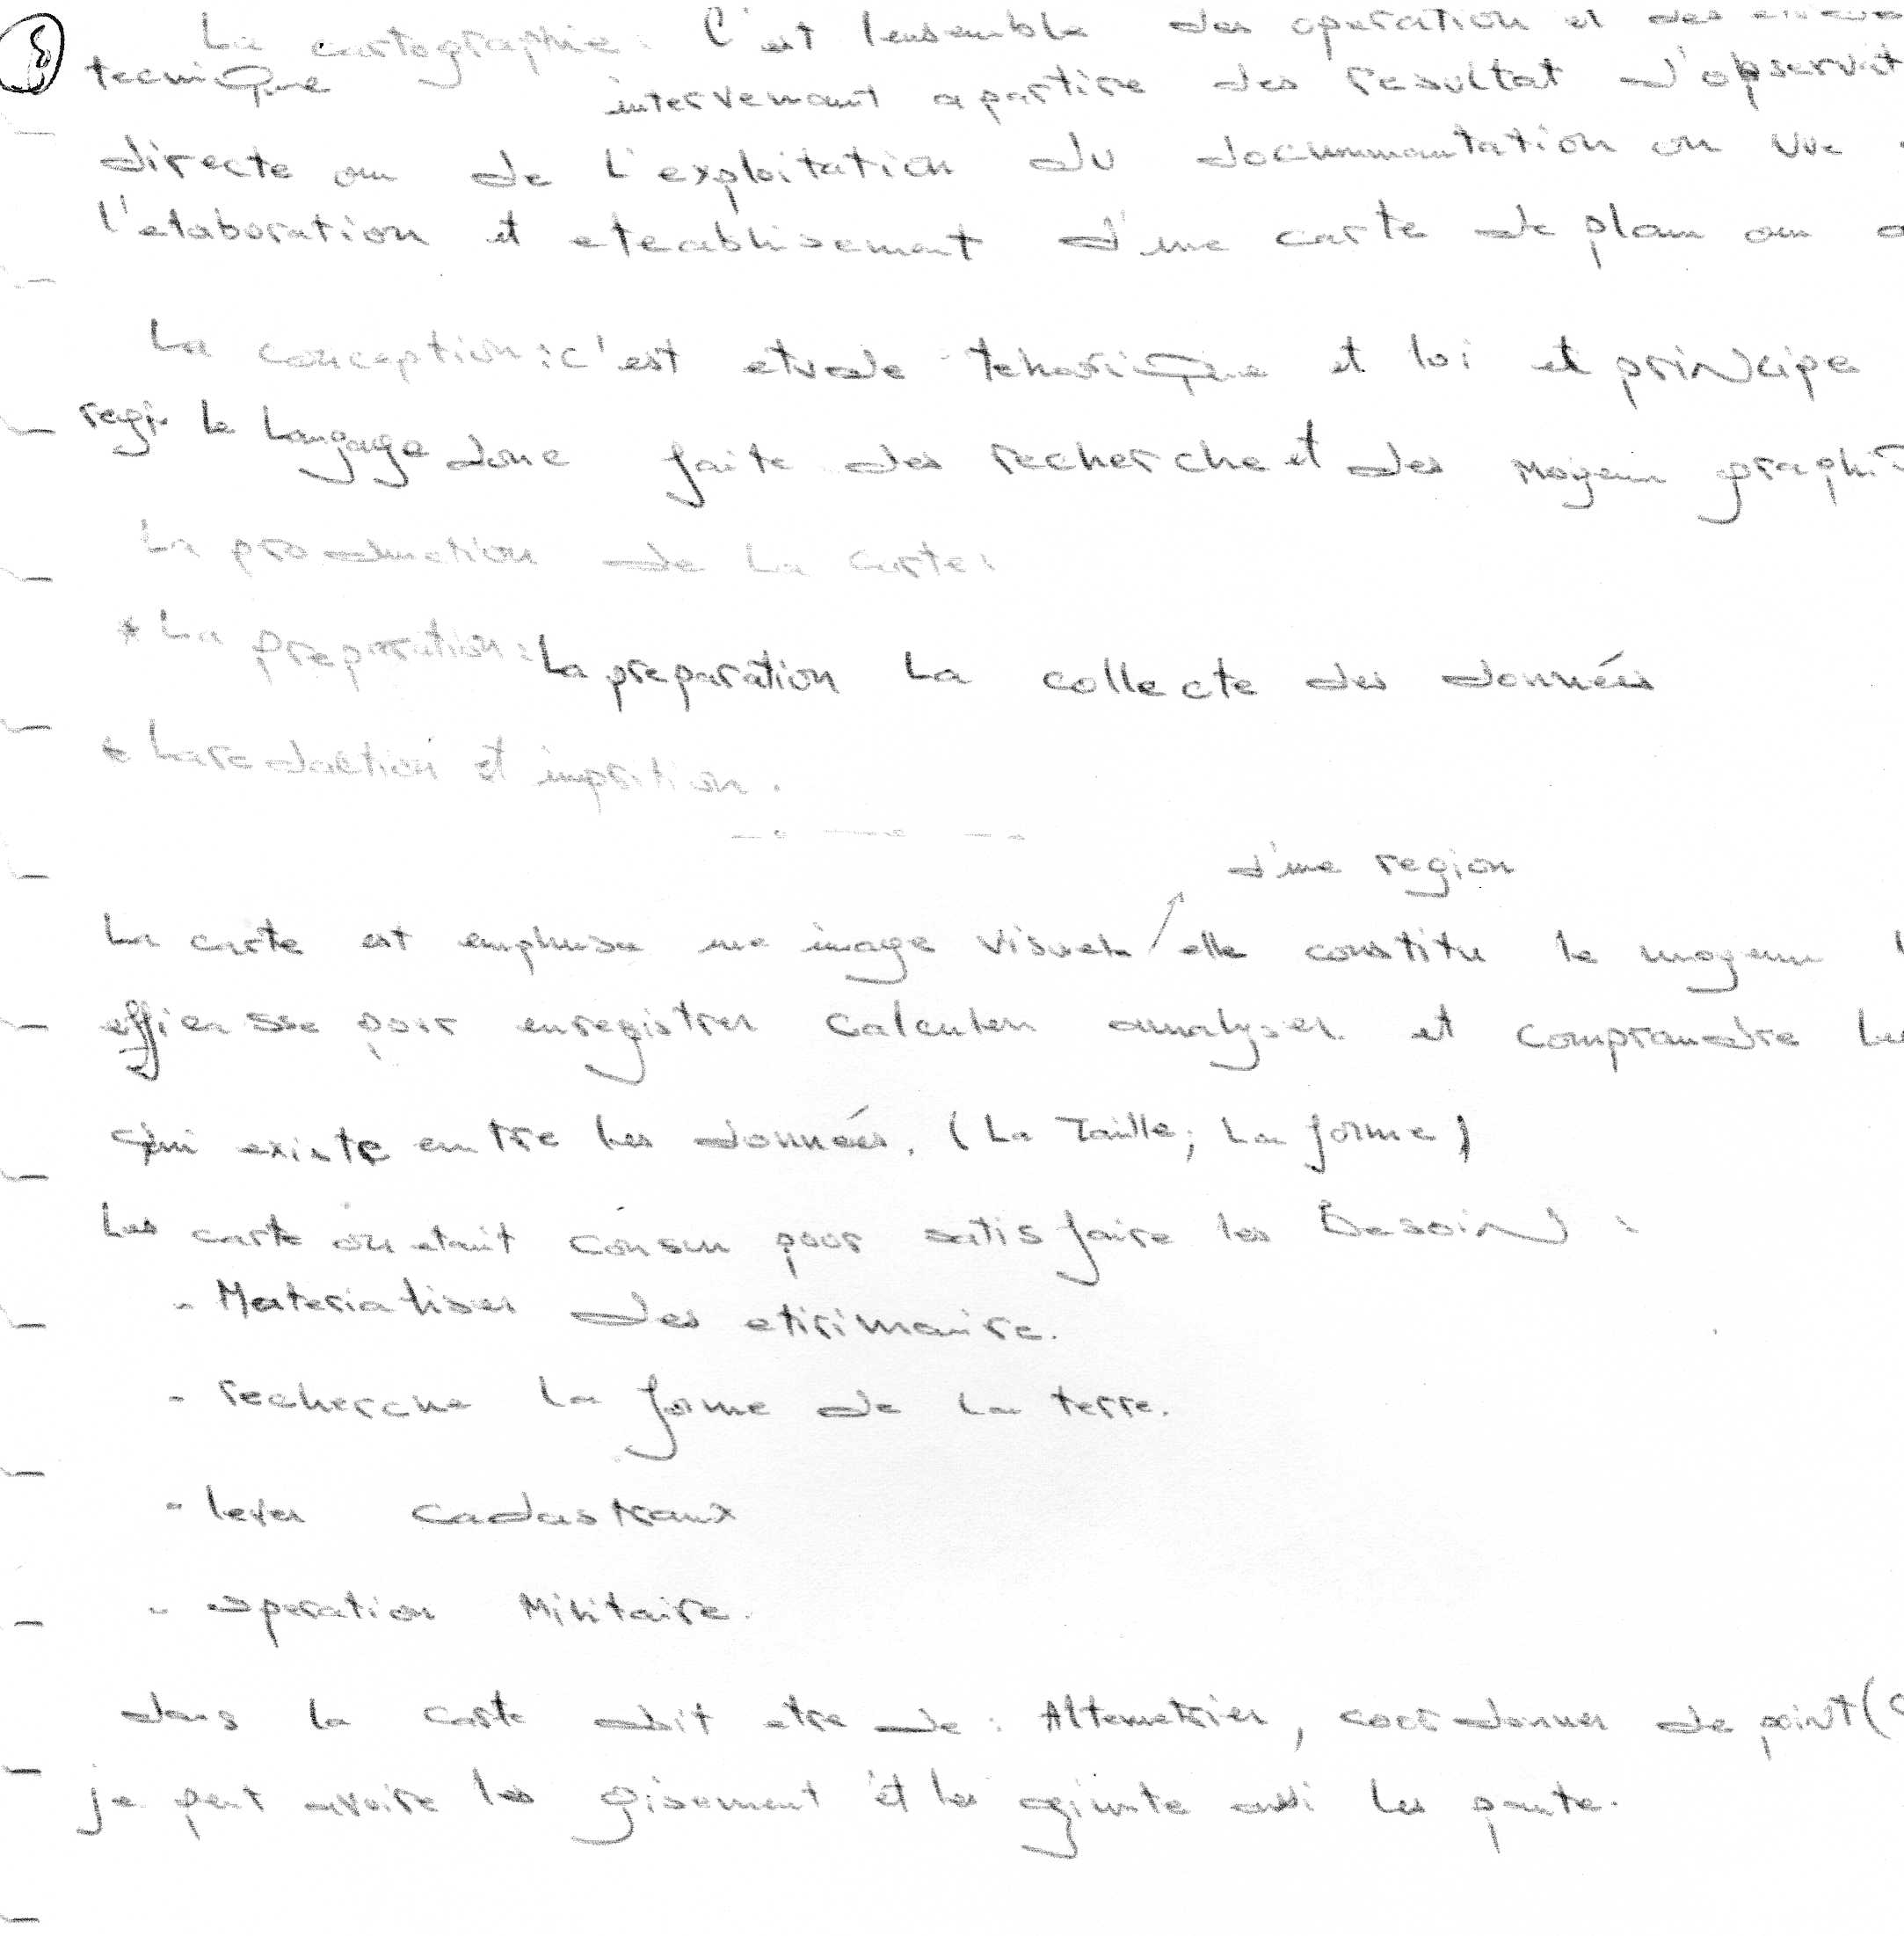 La cartographie : C'est lensemble des operation et des
tecnique intervenant a partire des resultat d'observat
directe ou de l'exploitation du docummantation en vue
l'elaboration et eteablisement d'une carte de plan ou
La conception : c'est etude tehorique et loi et principe
regi le langage donc faite des recherche et des moyen graphi
La production de la carte :
* La preparation : La preparation La collecte des données
* La redaction et imprition .
d'une region
La carte est une image visuele elle constitu le moyenne
pour enregistrer calculer analyser et comprandre les
qui existe entre les données. (La Taille; La forme)
Les carte on etait consu pour satisfaire les Besoin :
- Materialiser des etirimaire.
- recherche la forme de la terre.
- lever cadastraux
- operation Militaire.
dans la carte doit etre de : Altemetrier, coordonner de point (
je peut avoire les gisement et les ausi les pante.